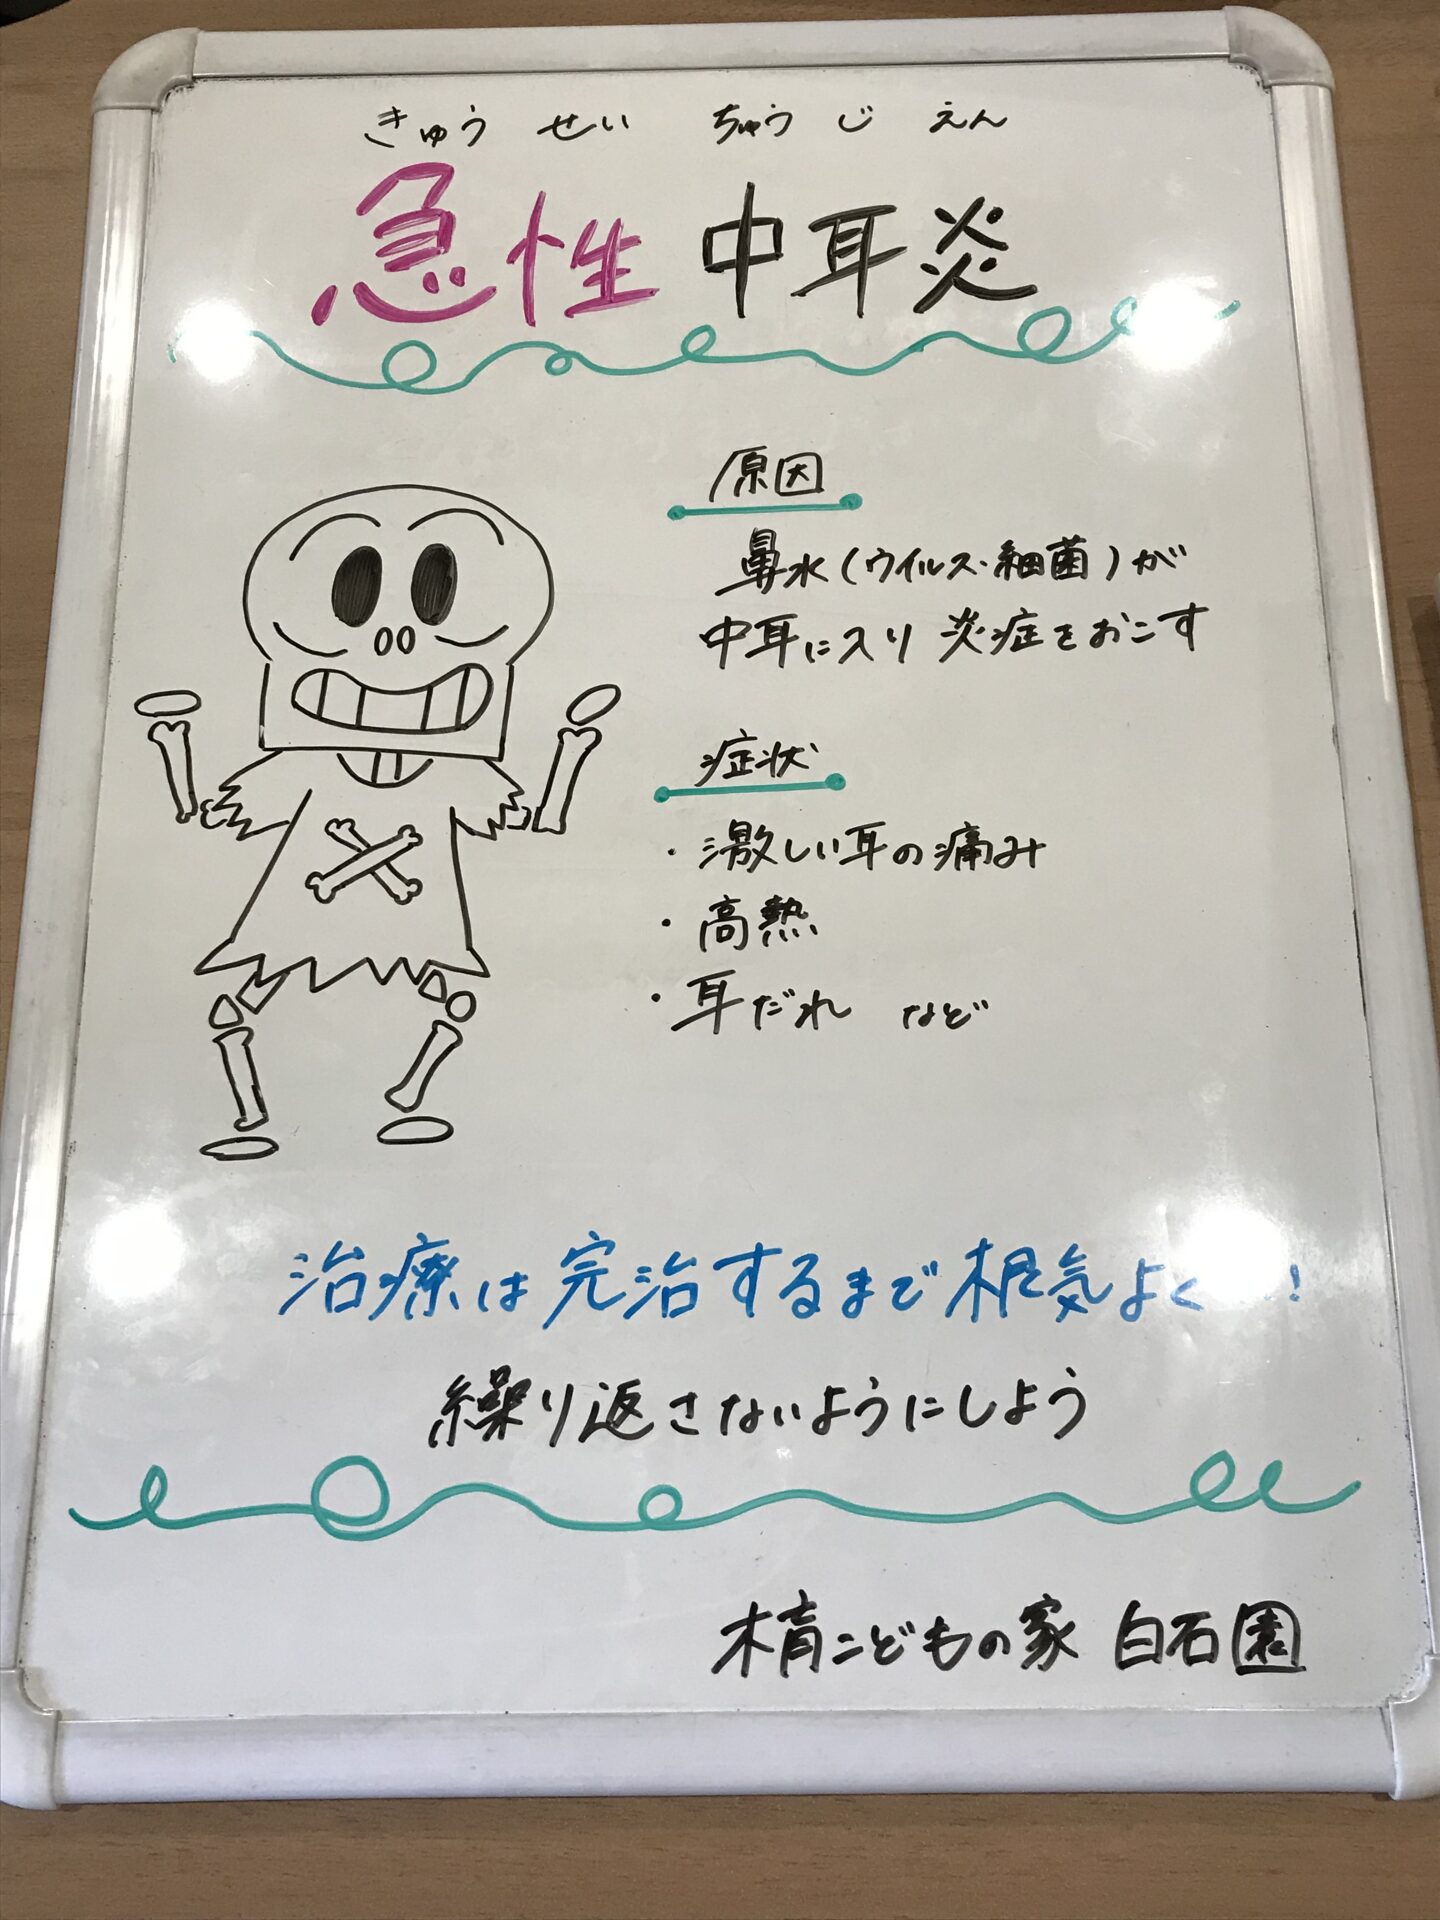 きゅう せい ちゅう じ えん
急性 中耳炎
原因
鼻水(ウイルス・細菌)が
中耳に入り 炎症をおこす
症状
・激しい耳の痛み
・高熱
・耳だれ など
治療は完治するまで根気よく !
繰り返さないようにしよう
木育こどもの家 白石園